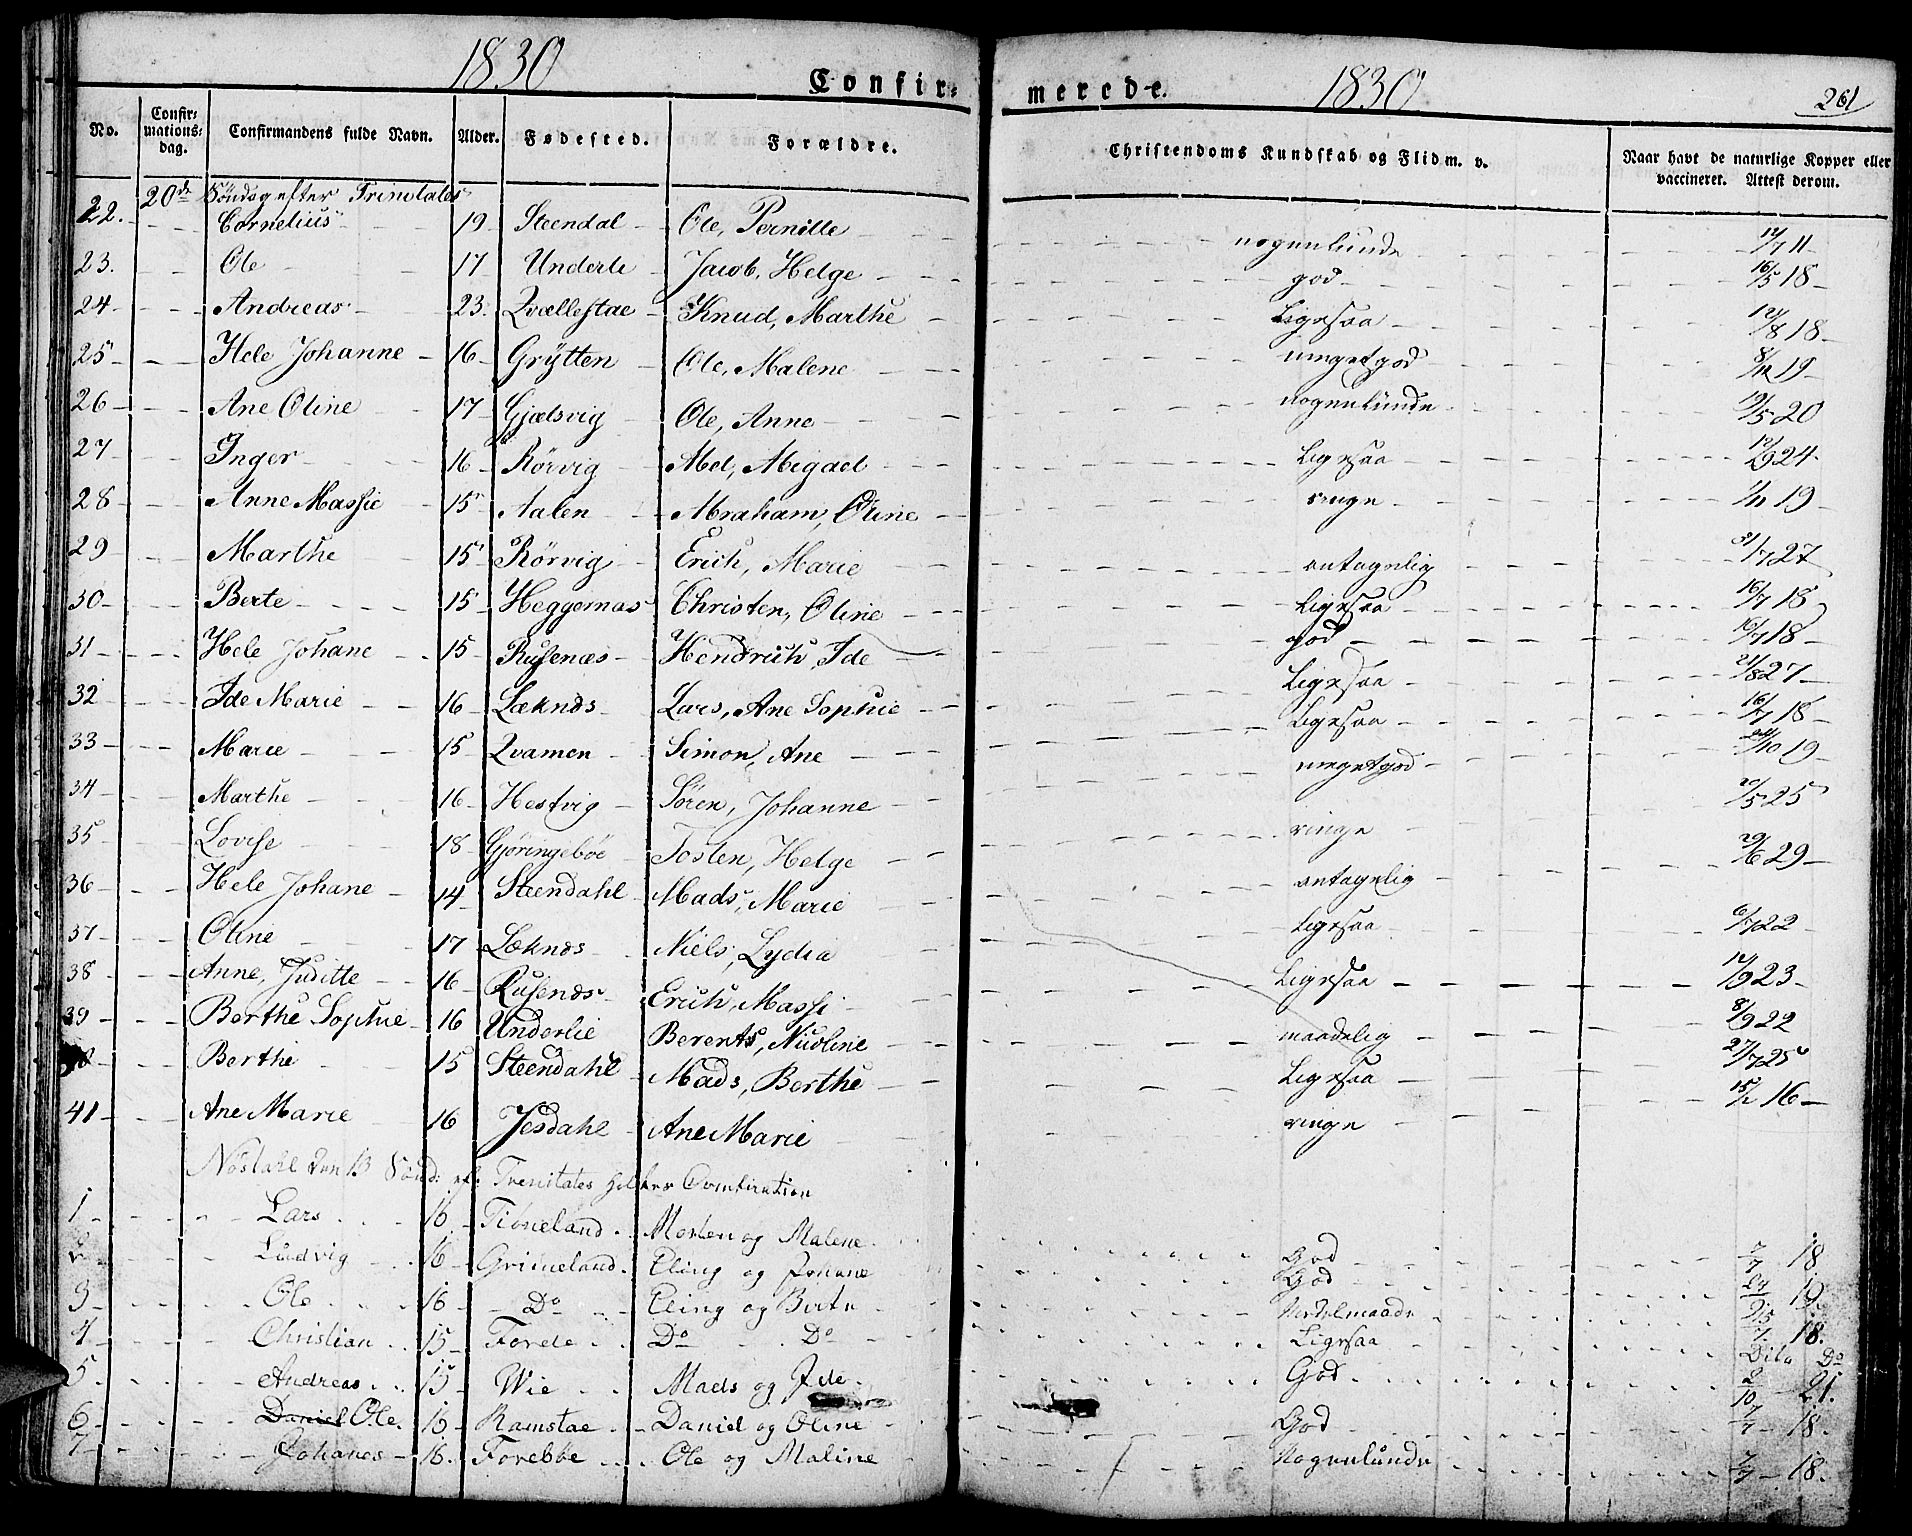 1830 Confir= merede. 1830 261
No. Confir-mations-dag. Confirmandens fulde Navn. Alder. Fødested. Forældre. Christendoms Kundskab og Flid m. v. Naar havt de naturlige Kopper eller vaccineret. Attest derom.
20de Söndag efter Trinitates
22. Cornelius 19 Steendal Ole, Pernille nogenlunde 12/7 11
23. Ole 17 Underli Jacob, Helge god 16/5 18
24 Andreas 23. Qvællestae Knud, Marthe Ligesaa 12/8 18
25 Hele Johanne 16 Grÿtten Ole, Malene meget god 8/12 19
26 Ane Oline 17 Gjælsvig Ole, Anne nogenlunde 19/5 20
27 Inger 16 Rörvig Abel, Abigael Ligesaa 12/9 24
28 Anne Massie 15 Aalen Abraham, Oline ringe 1/11 19
29 Marthe 15 Rörvig Erich, Marie antagelig 31/7 27
30 Berte 15 Heggernæs Christen, Oline Ligesaa 16/7 18
31 Hele Johane 15 Rusenæs Hendrich, Ide god 16/7 18
32 Ide Marie 16 Læknæs Lars, Ane Sophie Ligesaa 21/8 27
33 Marie 15 Qvamen Simon, Ane Ligesaa 16/7 18
34 Marthe 16 Hestvig Sören, Johanne meget god 24/10 19
35 Lovise 18 Gjöringeböe Tosten, Helge ringe 21/5 25
36 Hele Johane 14 Steendahl Mads, Marie antagelig 29/6 29
37 Oline 17 Læknæs Niels, Lydia Ligesaa 6/7 22
38 Anne, Juditte 16 Rusenæs Erich, Massi Ligesaa 12/9 23
39 Berthe Sophie 16 Underlie Berents, Nicoline maadelig 8/9 22
Berthe 15 Steendahl Mads, Berthe Ligesaa 27/7 25
41 Ane Marie 16 Jesdahl Ane Marie ringe 15/2 16
Nöstdahl den 13 Sönd: eft: Trenitates holden Confirmation
1 Lars 16 Tiöneland Morten og Malene God 7/7 18
2 Ludvig 16 Grimeland Eling og Johane God 19
3 Ole 16 Do Eling og Berte Medelmaade 18.
4 Christian 15 Forede Do Do Ligesaa Dito Do
5 Andreas 15 Wie Mads og Ide God 2/10 21.
6 Daniel Ole 15 Ramstae Daniel og Oline God 7/7 18.
7 Johanes 16. Forebøe Ole og Maline Nogenlunde 7/7 18.